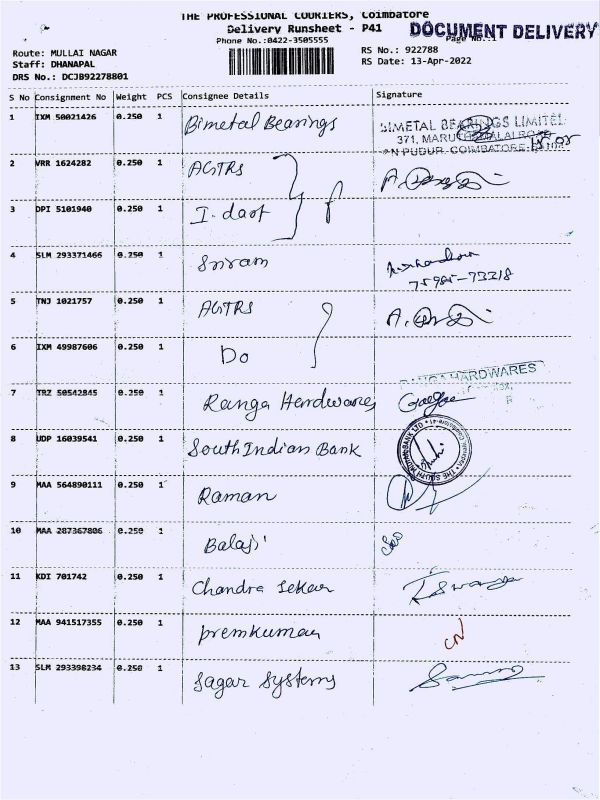 THE PROFESSIONAL COURIERS, Coimbatore
Delivery Runsheet - P41
DOCUMENT DELIVERY
Page No.:1
Phone No.:0422-3505555
Route: MULLAI NAGAR
Staff: DHANAPAL
DRS No.: DCJB92278801
RS No.: 922788
RS Date: 13-Apr-2022
S No Consignment No Weight PCS Consignee Details Signature
1 IXM 50021426 0.250 1 Bimetal Bearings
BIMETAL BEARINGS LIMITED
371,
PUDUR, COIMBATORE
2 VRR 1624282 0.250 1 AGTRS
3 DPI 5101940 0.250 1 I. dart
4 SLM 293371466 0.250 1 Sriram
75985-73218
5 TNJ 1021757 0.250 1 AGTRS
6 IXM 49987606 0.250 1 Do
RANGA HARDWARES
7 TRZ 50542845 0.250 1 Ranga Hardwares
8 UDP 16039541 0.250 1 South Indian Bank
9 MAA 564890111 0.250 1 Raman
10 MAA 287367806 0.250 1 Balaji
11 KDI 701742 0.250 1 Chandra Sekar
12 MAA 941517355 0.250 1 premkumar
13 SLM 293398234 0.250 1 Sagar Systems